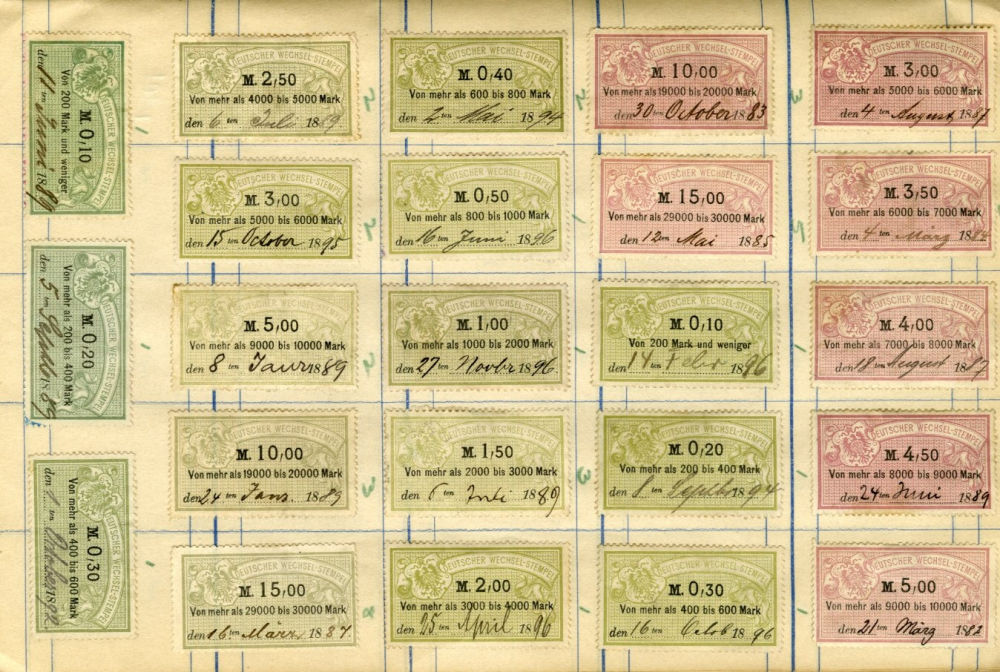 DEUTSCHER WECHSEL-STEMPEL
M. 0,10
Von 200 Mark und weniger
den 11 ten Juni 1889
DEUTSCHER WECHSEL-STEMPEL
M. 0,20
Von mehr als 200 bis 400 Mark
den 5 ten
DEUTSCHER WECHSEL-STEMPEL
M. 0,30
Von mehr als 400 bis 600 Mark
den 1 ten October 18
DEUTSCHER WECHSEL-STEMPEL
M. 2,50
Von mehr als 4000 bis 5000 Mark
den 6 ten Juli 1889
DEUTSCHER WECHSEL-STEMPEL
M. 3,00
Von mehr als 5000 bis 6000 Mark
den 15 ten October 1895
DEUTSCHER WECHSEL-STEMPEL
M. 5,00
Von mehr als 9000 bis 10000 Mark
den 8 ten Janr 1889
DEUTSCHER WECHSEL-STEMPEL
M. 10,00
Von mehr als 19000 bis 20000 Mark
den 24 ten Janr. 1889
DEUTSCHER WECHSEL-STEMPEL
M. 15,00
Von mehr als 29000 bis 30000 Mark
den 16 ten März 1887
DEUTSCHER WECHSEL-STEMPEL
M. 0,40
Von mehr als 600 bis 800 Mark
den 2 ten Mai 1894
DEUTSCHER WECHSEL-STEMPEL
M. 0,50
Von mehr als 800 bis 1000 Mark
den 16 ten Juni 1896
DEUTSCHER WECHSEL-STEMPEL
M. 1,00
Von mehr als 1000 bis 2000 Mark
den 27 ten Novbr 1896
DEUTSCHER WECHSEL-STEMPEL
M. 1,50
Von mehr als 2000 bis 3000 Mark
den 6 ten Juli 1889
DEUTSCHER WECHSEL-STEMPEL
M. 2,00
Von mehr als 3000 bis 4000 Mark
den 25 ten April 1896
DEUTSCHER WECHSEL-STEMPEL
M. 10,00
Von mehr als 19000 bis 20000 Mark
den 30 ten October 1883
DEUTSCHER WECHSEL-STEMPEL
M. 15,00
Von mehr als 29000 bis 30000 Mark
den 12 ten Mai 1885
DEUTSCHER WECHSEL-STEMPEL
M. 0,10
Von 200 Mark und weniger
den 14 ten Febr 1896
DEUTSCHER WECHSEL-STEMPEL
M. 0,20
Von mehr als 200 bis 400 Mark
den 8 ten Septbr 1894
DEUTSCHER WECHSEL-STEMPEL
M. 0,30
Von mehr als 400 bis 600 Mark
den 16 ten Octob 1896
DEUTSCHER WECHSEL-STEMPEL
M. 3,00
Von mehr als 5000 bis 6000 Mark
den 4 ten August 1887
DEUTSCHER WECHSEL-STEMPEL
M. 3,50
Von mehr als 6000 bis 7000 Mark
den 4 ten März 1884
DEUTSCHER WECHSEL-STEMPEL
M. 4,00
Von mehr als 7000 bis 8000 Mark
den 18 ten August 1887
DEUTSCHER WECHSEL-STEMPEL
M. 4,50
Von mehr als 8000 bis 9000 Mark
den 24 ten Juni 1889
DEUTSCHER WECHSEL-STEMPEL
M. 5,00
Von mehr als 9000 bis 10000 Mark
den 21 ten März 1882